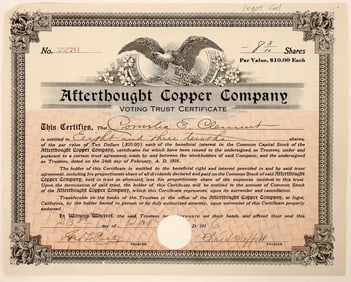 No. 2270
8 3/10 Shares
Par Value, $10.00 Each
Afterthought Copper Company
VOTING TRUST CERTIFICATE
This Certifies, that Cornelia E. Clement
is entitled to Eight and three tenths shares,
of the par value of Ten Dollars ($10.00) each of the beneficial interest in the Common Capital Stock of the
Afterthought Copper Company, certificates for which have been issued to the undersigned, as Trustees, under and
pursuant to a certain trust agreement, made by and between the stockholders of said Company, and the undersigned
as Trustees, dated on the 24th day of February, A. D. 1916.
The holder of this Certificate is entitled to the beneficial right and interest provided in and by said trust
agreement, including his proportionate share of all dividends declared and paid on the Common Stock of said Afterthought
Copper Company, held in trust as aforesaid, less his proportionate share of the expenses incident to this trust.
Upon the termination of said trust, the holder of this Certificate will be entitled to the amount of Common Stock
of the Afterthought Copper Company, which this Certificate represents, upon its surrender and cancellation.
Transferable on the books of the Trustees in the office of the
California, by the holder hereof in person or by duly authorized attorney, upon surrender of this Certificate properly
endorsed.
In Witness Whereof, the said Trustees have hereunto set their hands and affixed their seal this
day of
TRUSTEE
TRUSTEE